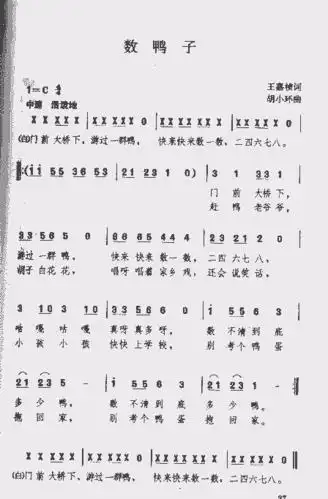 数鸭子
1=C 2/4
王嘉桢词
中速 活泼地
胡小环曲
X X X X X X X X X X X 0 X X X X X X X X X X X 0
(白)门前大桥下,游过一群鸭, 快来快来数一数,二四六七八。
3 1 3 3 1
门前大桥下,
赶鸭老爷爷,
3 3 5 6 5 0 6 6 6 5 4 4 4 2 3 2 1 2 0
游过一群鸭。 快来快来数一数,二四六七八。
胡子白花花, 唱呀唱着家乡戏,还会说笑话。
3 1 0 3 1 0 3 3 5 6 6 0
咕嘎咕嘎 真呀真多呀。 数不清到底
小孩小孩 快快上学校, 别考个鸭蛋
多少鸭, 数不清到底多少鸭。
抱回家, 别考个鸭蛋抱回家。
X X X X X X X X X X X 0 X X X X X X X X X X X 0
(白)门前大桥下,游过一群鸭, 快来快来数一数,二四六七八。